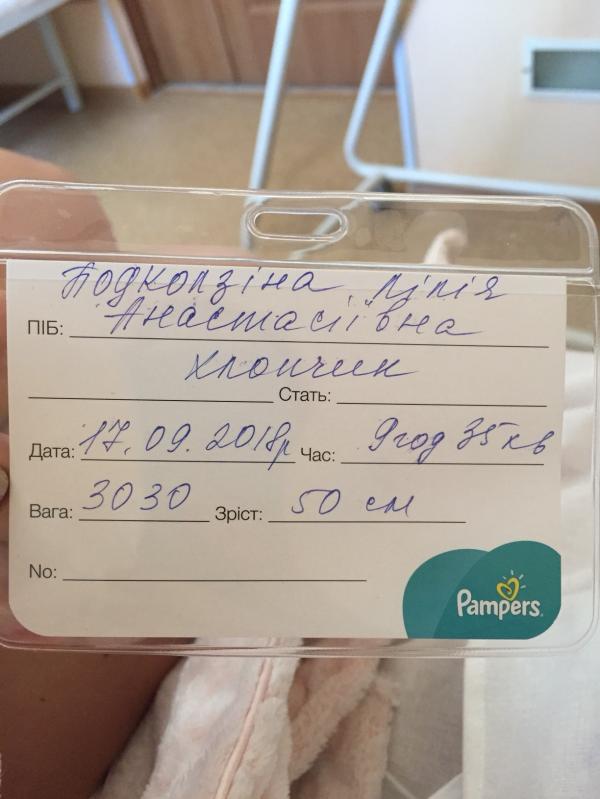 Подкопзіна Лілія
ПІБ: Анастасіївна
хлопчик
Стать:
Дата: 17.09.2018р Час: 9год 35хв
Вага: 3030 Зріст: 50 см
No:
Pampers